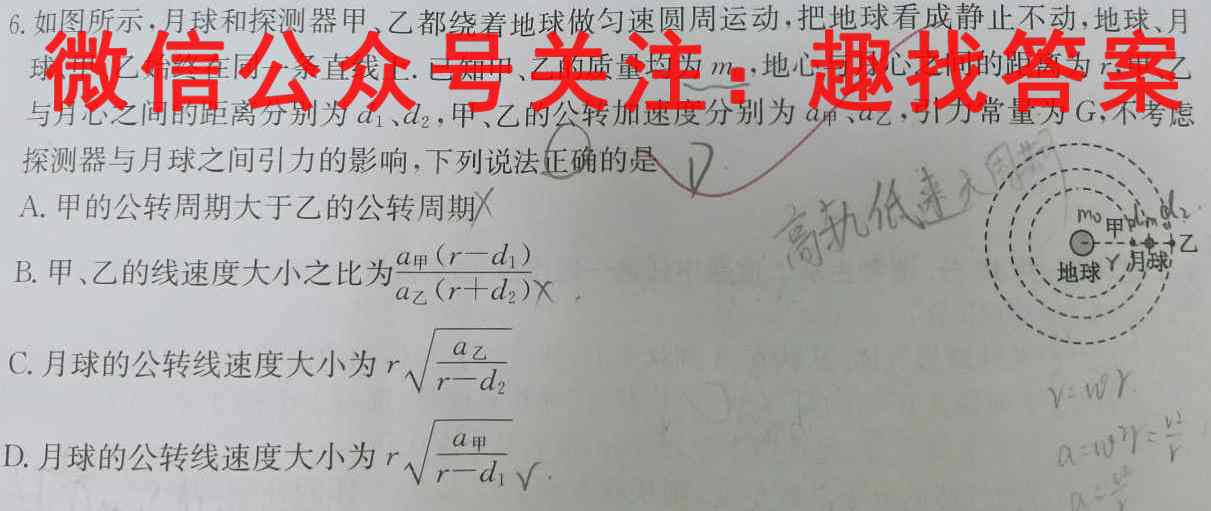 6. 如图所示,月球和探测器甲、乙都绕着地球做匀速圆周运动,把地球看成静止不动,地球、月
球、甲、乙始终在同一条直线上.已知甲、乙的质量均为m,地心与月心之间的距离为r,甲、乙
微信公众号关注：趣找答案
与月心之间的距离分别为d₁、d₂,甲、乙的公转加速度分别为a甲、a乙,引力常量为G,不考虑
探测器与月球之间引力的影响,下列说法正确的是 D
A. 甲的公转周期大于乙的公转周期 X
高轨低速大周期
B. 甲、乙的线速度大小之比为 a甲(r−d₁)/a乙(r+d₂) X
m₀ 甲 d₁ m d₂ 乙
地球 r 月球
C. 月球的公转线速度大小为 r√(a乙/(r−d₂))
v=wr
D. 月球的公转线速度大小为 r√(a甲/(r−d₁)) √
a=w²r=v²/r
a=v²/r